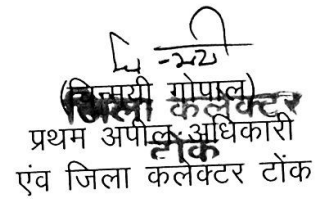 (चिन्मयी गोपाल)
जिला कलेक्टर
प्रथम अपील अधिकारी
टोंक
एंव जिला कलेक्टर टोंक